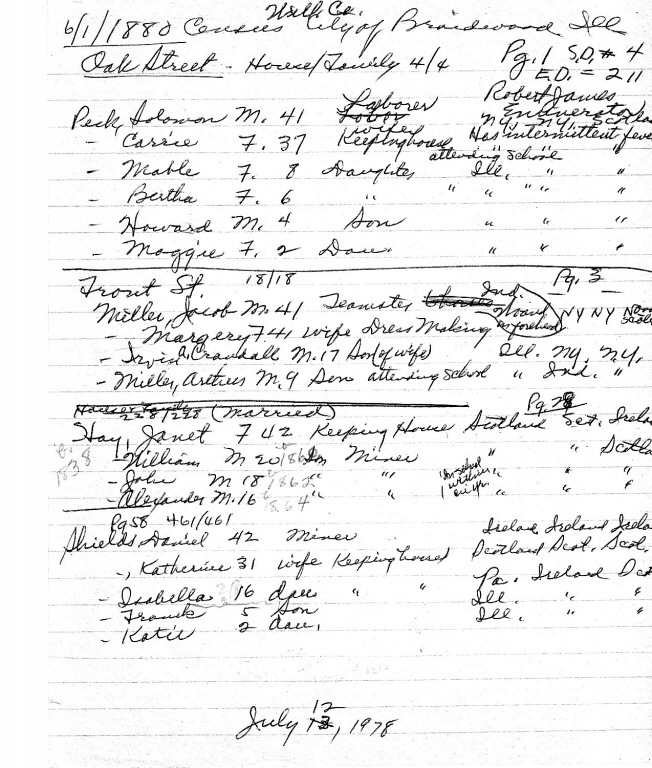 Will Co.
6/1/1880 Census City of Braidwood Ill
Oak Street - House/Family 4/4 Pg. 1 S.D. # 4
E.D. = 211
Laborer Robert James
Peck, Solomon M. 41 Enumerator
NY. NY. Scotland
- Carrie F. 37 Keeping house Has intermittent fever
attending school
- Mable F. 8 Daughter Ill. " "
- Bertha F. 6 " " " " " "
- Howard M. 4 Son " " "
- Maggie F. 2 Dau. " " "
Front St. 18/18 Pg. 3
Miller, Jacob M. 41 Teamster Ind. NY NY
- Margery F 41 wife Dress Making
- Irvin A. Crandall M. 17 Son (of wife) Ill. NY. NY.
- Miller, Arthur M. 9 Son attending school " Ind. "
228/228 (Married) Pg 28
Hay, Janet F 42 Keeping House Scotland Sct. Irelan
- William M 20 1860 Son Miner " " Scotla
- John M 18 1862 " " " " "
- Alexander M. 16 1864 " " " " "
b. 1838
Pg 58 461/461
Shields, Daniel 42 Miner Ireland Ireland Irela
-, Katherine 31 wife Keeping house Scotland Scot. Scot.
- Isabella 16 dau " " Pa. Ireland Scot
- Frank 5 Son Ill. " "
- Katie 2 dau. Ill. " "
July 12, 1978